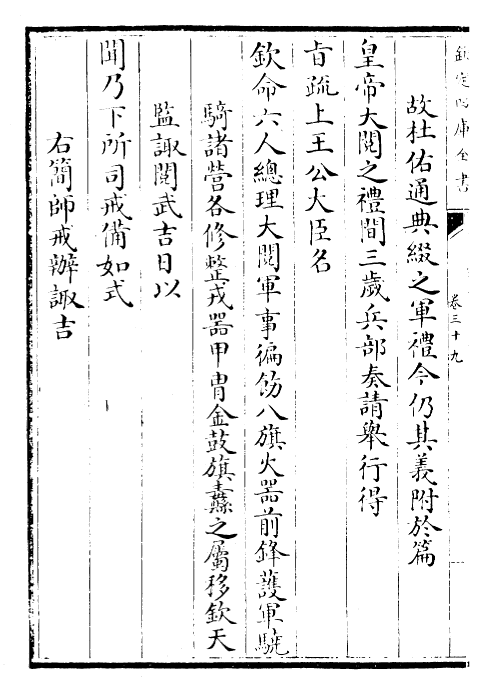 欽定四庫全書
卷三十九
故杜佑通典綴之軍禮今仍其義附於篇
皇帝大閱之禮間三歲兵部奏請舉行得
旨疏上王公大臣名
欽命六人總理大閱軍事徧飭八旗火器前鋒護軍驍
騎諸營各修整戎器甲冑金鼓旗纛之屬移欽天
監諏閱武吉日以
聞乃下所司戒備如式
右簡師戒辦諏吉